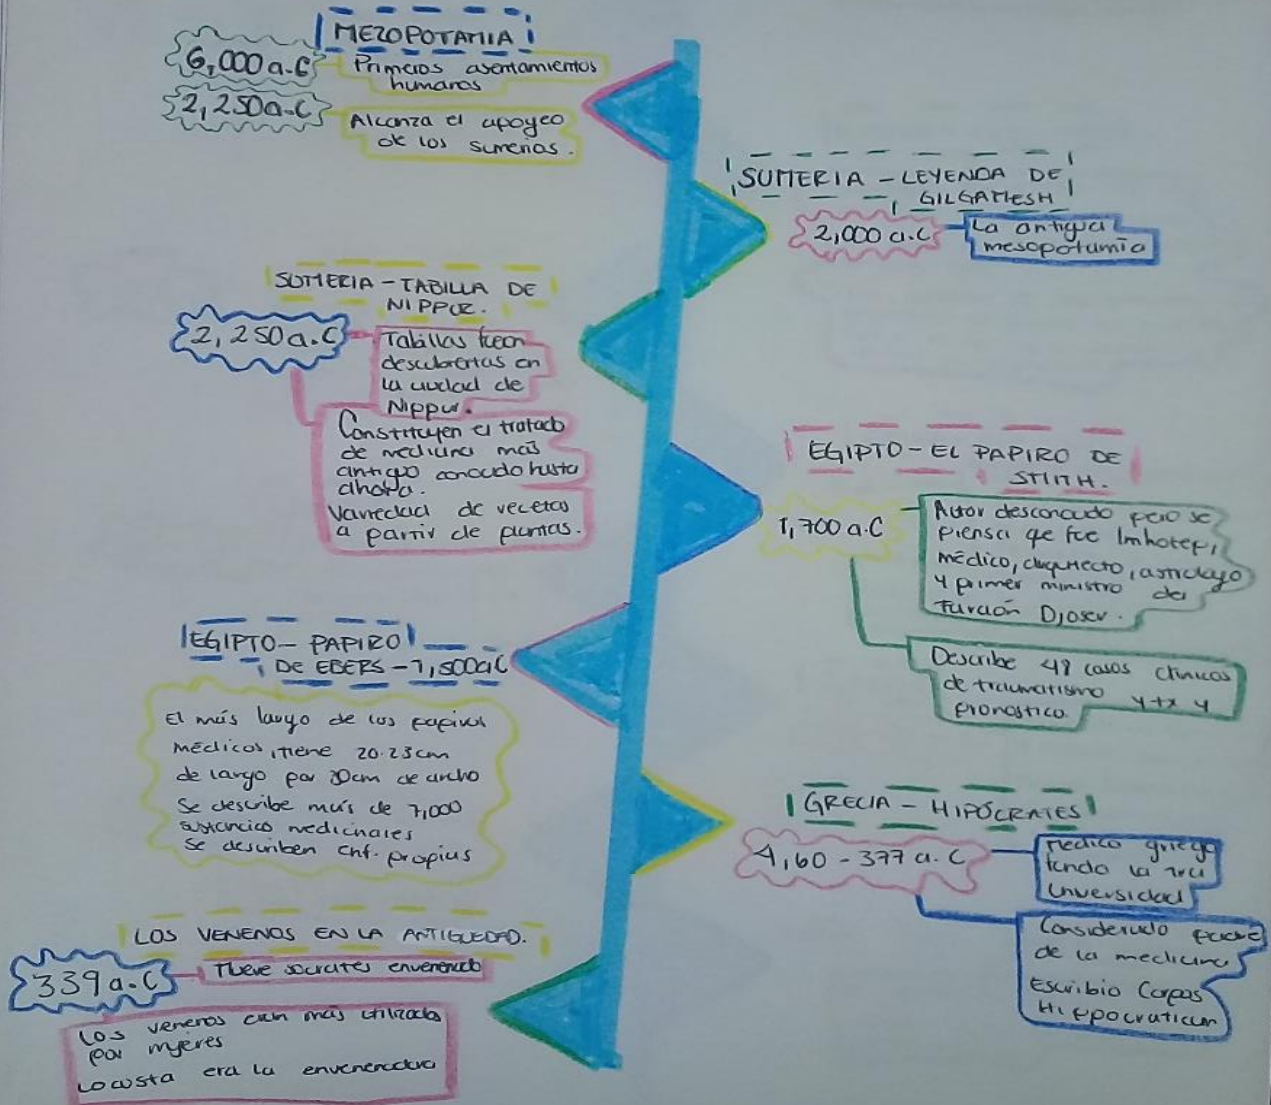 MEZOPOTAMIA
6,000 a.C
Primeros asentamientos
humanos
2,250 a.C
Alcanza el apoyeo
de los sumerios.
SUMERIA - LEYENDA DE
GILGAMESH
2,000 a.C
La antigua
mesopotamia
SUMERIA - TABILLA DE
NIPPUR.
2,250 a.C
Tabillas
descubiertas en
la ciudad de
Nippur.
Constituyen el tratado
de medicina más
antiguo conocido hasta
ahora.
Variedad de recetas
a partir de plantas.
EGIPTO - EL PAPIRO DE
SMITH.
1,700 a.C
Autor desconocido pero se
piensa que fue Imhotep,
médico, arquitecto, astrologo
y primer ministro del
Faraón Djoser.
Describe 48 casos clínicos
de traumatismo y tx y
pronostico.
EGIPTO - PAPIRO
DE EBERS - 1,500 a.C
El más largo de los papiros
médicos, tiene 20.23cm
de largo por 30cm de ancho
Se describe más de 7,000
sustancias medicinales
Se describen enf. propias
GRECIA - HIPÓCRATES
4,60 - 377 a.C
Medico griego
fundo la 1ra
Universidad
Considerado padre
de la medicina
Escribio Corpas
Hippocraticum
LOS VENENOS EN LA ANTIGUEDAD.
339 a.C
Muere socrates envenenado
Los venenos eran más utilizados
por mujeres
Locusta era la envenenadora